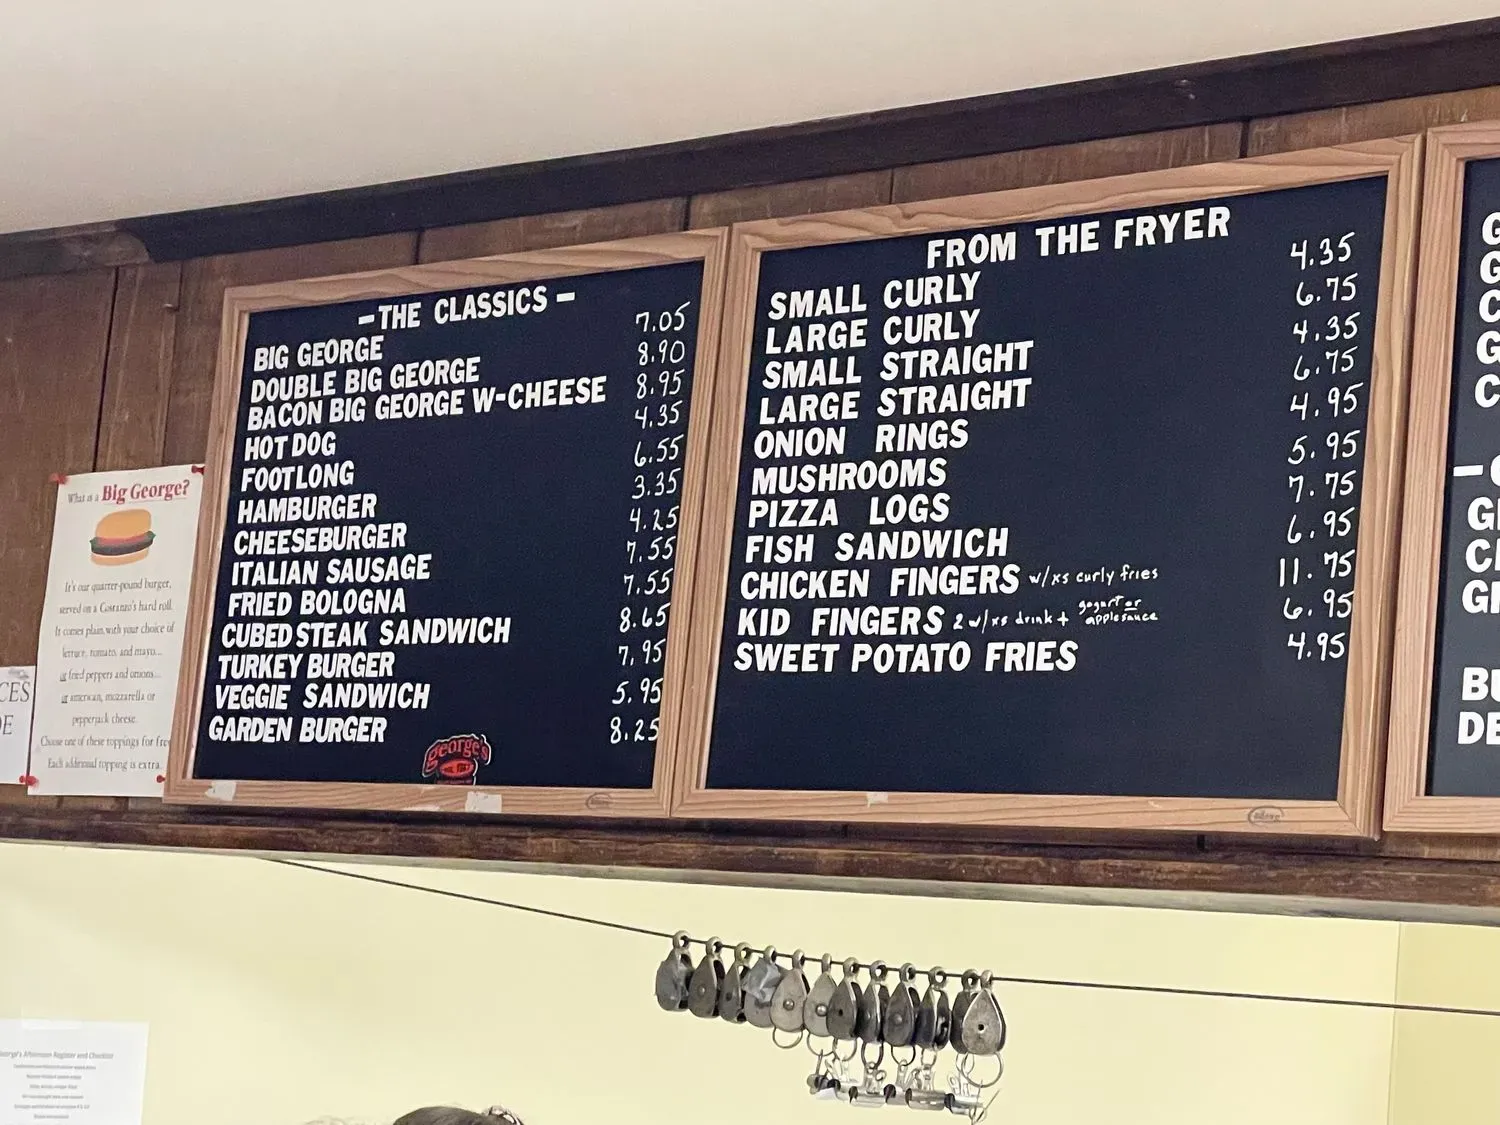 -THE CLASSICS-
BIG GEORGE 7.05
DOUBLE BIG GEORGE 8.90
BACON BIG GEORGE W-CHEESE 8.95
HOT DOG 4.35
FOOTLONG 6.55
HAMBURGER 3.35
CHEESEBURGER 4.25
ITALIAN SAUSAGE 7.55
FRIED BOLOGNA 7.55
CUBED STEAK SANDWICH 8.65
TURKEY BURGER 7.95
VEGGIE SANDWICH 5.95
GARDEN BURGER 8.25
george's
FROM THE FRYER
SMALL CURLY 4.35
LARGE CURLY 6.75
SMALL STRAIGHT 4.35
LARGE STRAIGHT 6.75
ONION RINGS 4.95
MUSHROOMS 5.95
PIZZA LOGS 7.75
FISH SANDWICH 6.95
CHICKEN FINGERS w/xs curly fries 11.75
KID FINGERS 2 w/xs drink + yogurt or applesauce 6.95
SWEET POTATO FRIES 4.95
What is a Big George?
It's our quarter-pound burger,
served on a Costanzo's hard roll.
It comes plain with your choice of
lettuce, tomato, and mayo...
or fried peppers and onions...
or american, mozzarella or
pepperjack cheese.
Choose one of these toppings for fre
Each additional topping is extra.
CES
DE
G
G
C
G
C
-
G
C
G
BU
DE
George's Afternoon Register and Checklist